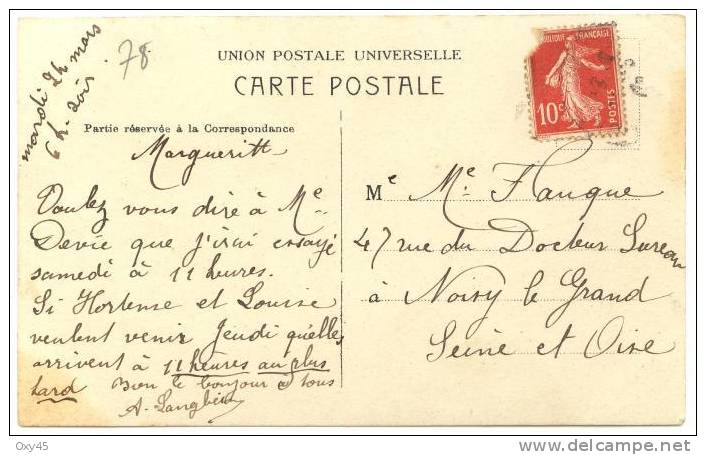 mardi 24 mars
6 h. soir
78
UNION POSTALE UNIVERSELLE
CARTE POSTALE
Partie réservée à la Correspondance
FRANÇAISE
10c
POSTES
Margueritte
Voulez vous dire à Me
Devie que j'irai essayé
samedi à 11 heures.
Si Hortense et Louise
veulent venir Jeudi qu'elles
arrivent à 11 heures au plus
tard Bien le bonjour à tous
A. Langbein
Me Me Flanque
47 rue du Docteur Sureau
à Noisy le Grand
Seine et Oise
Oxy45
delcampe.net